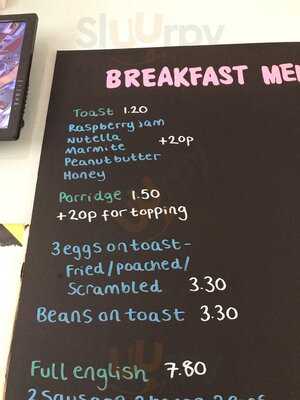 Slurpy
BREAKFAST
Toast 1.20
Raspberry jam
Nutella +20p
Marmite
Peanut butter
Honey
Porridge 1.50
+20p for topping
3 eggs on toast -
Fried/poached/
Scrambled 3.30
Beans on toast 3.30
Full english 7.80